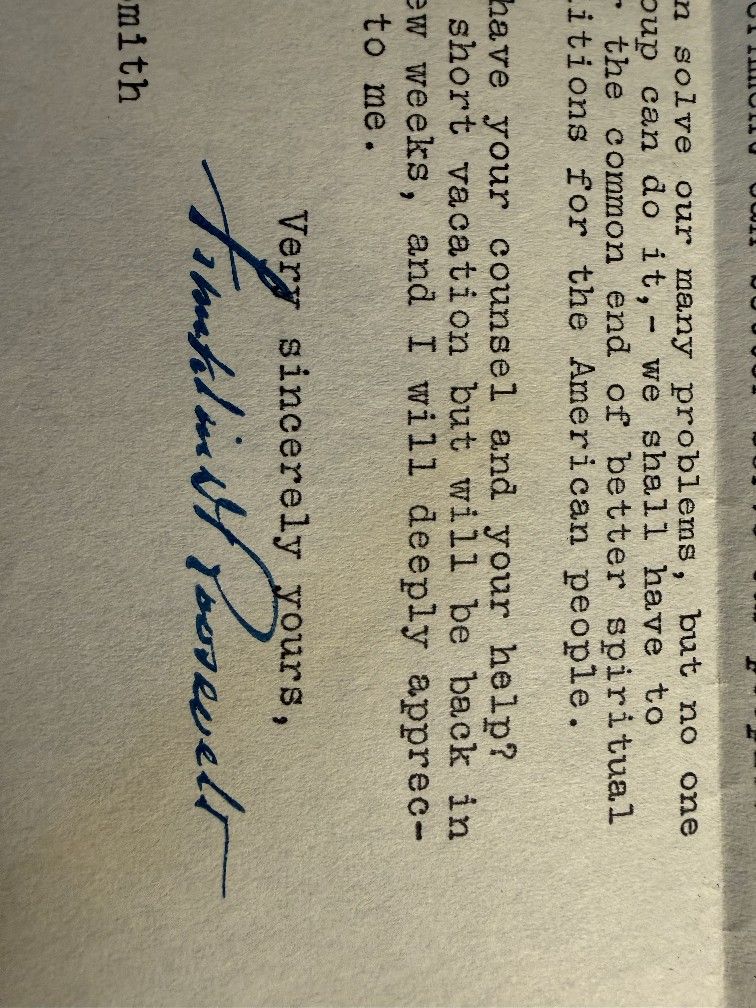 n solve our many problems, but no one
oup can do it,- we shall have to
r the common end of better spiritual
itions for the American people.
have your counsel and your help?
short vacation but will be back in
ew weeks, and I will deeply apprec-
to me.
Very sincerely yours,
Franklin D Roosevelt
mith